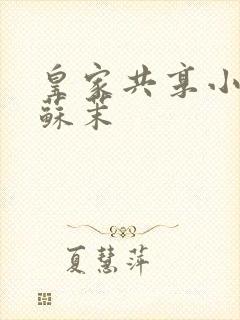 皇家共享小
蘇茉
夏慧萍